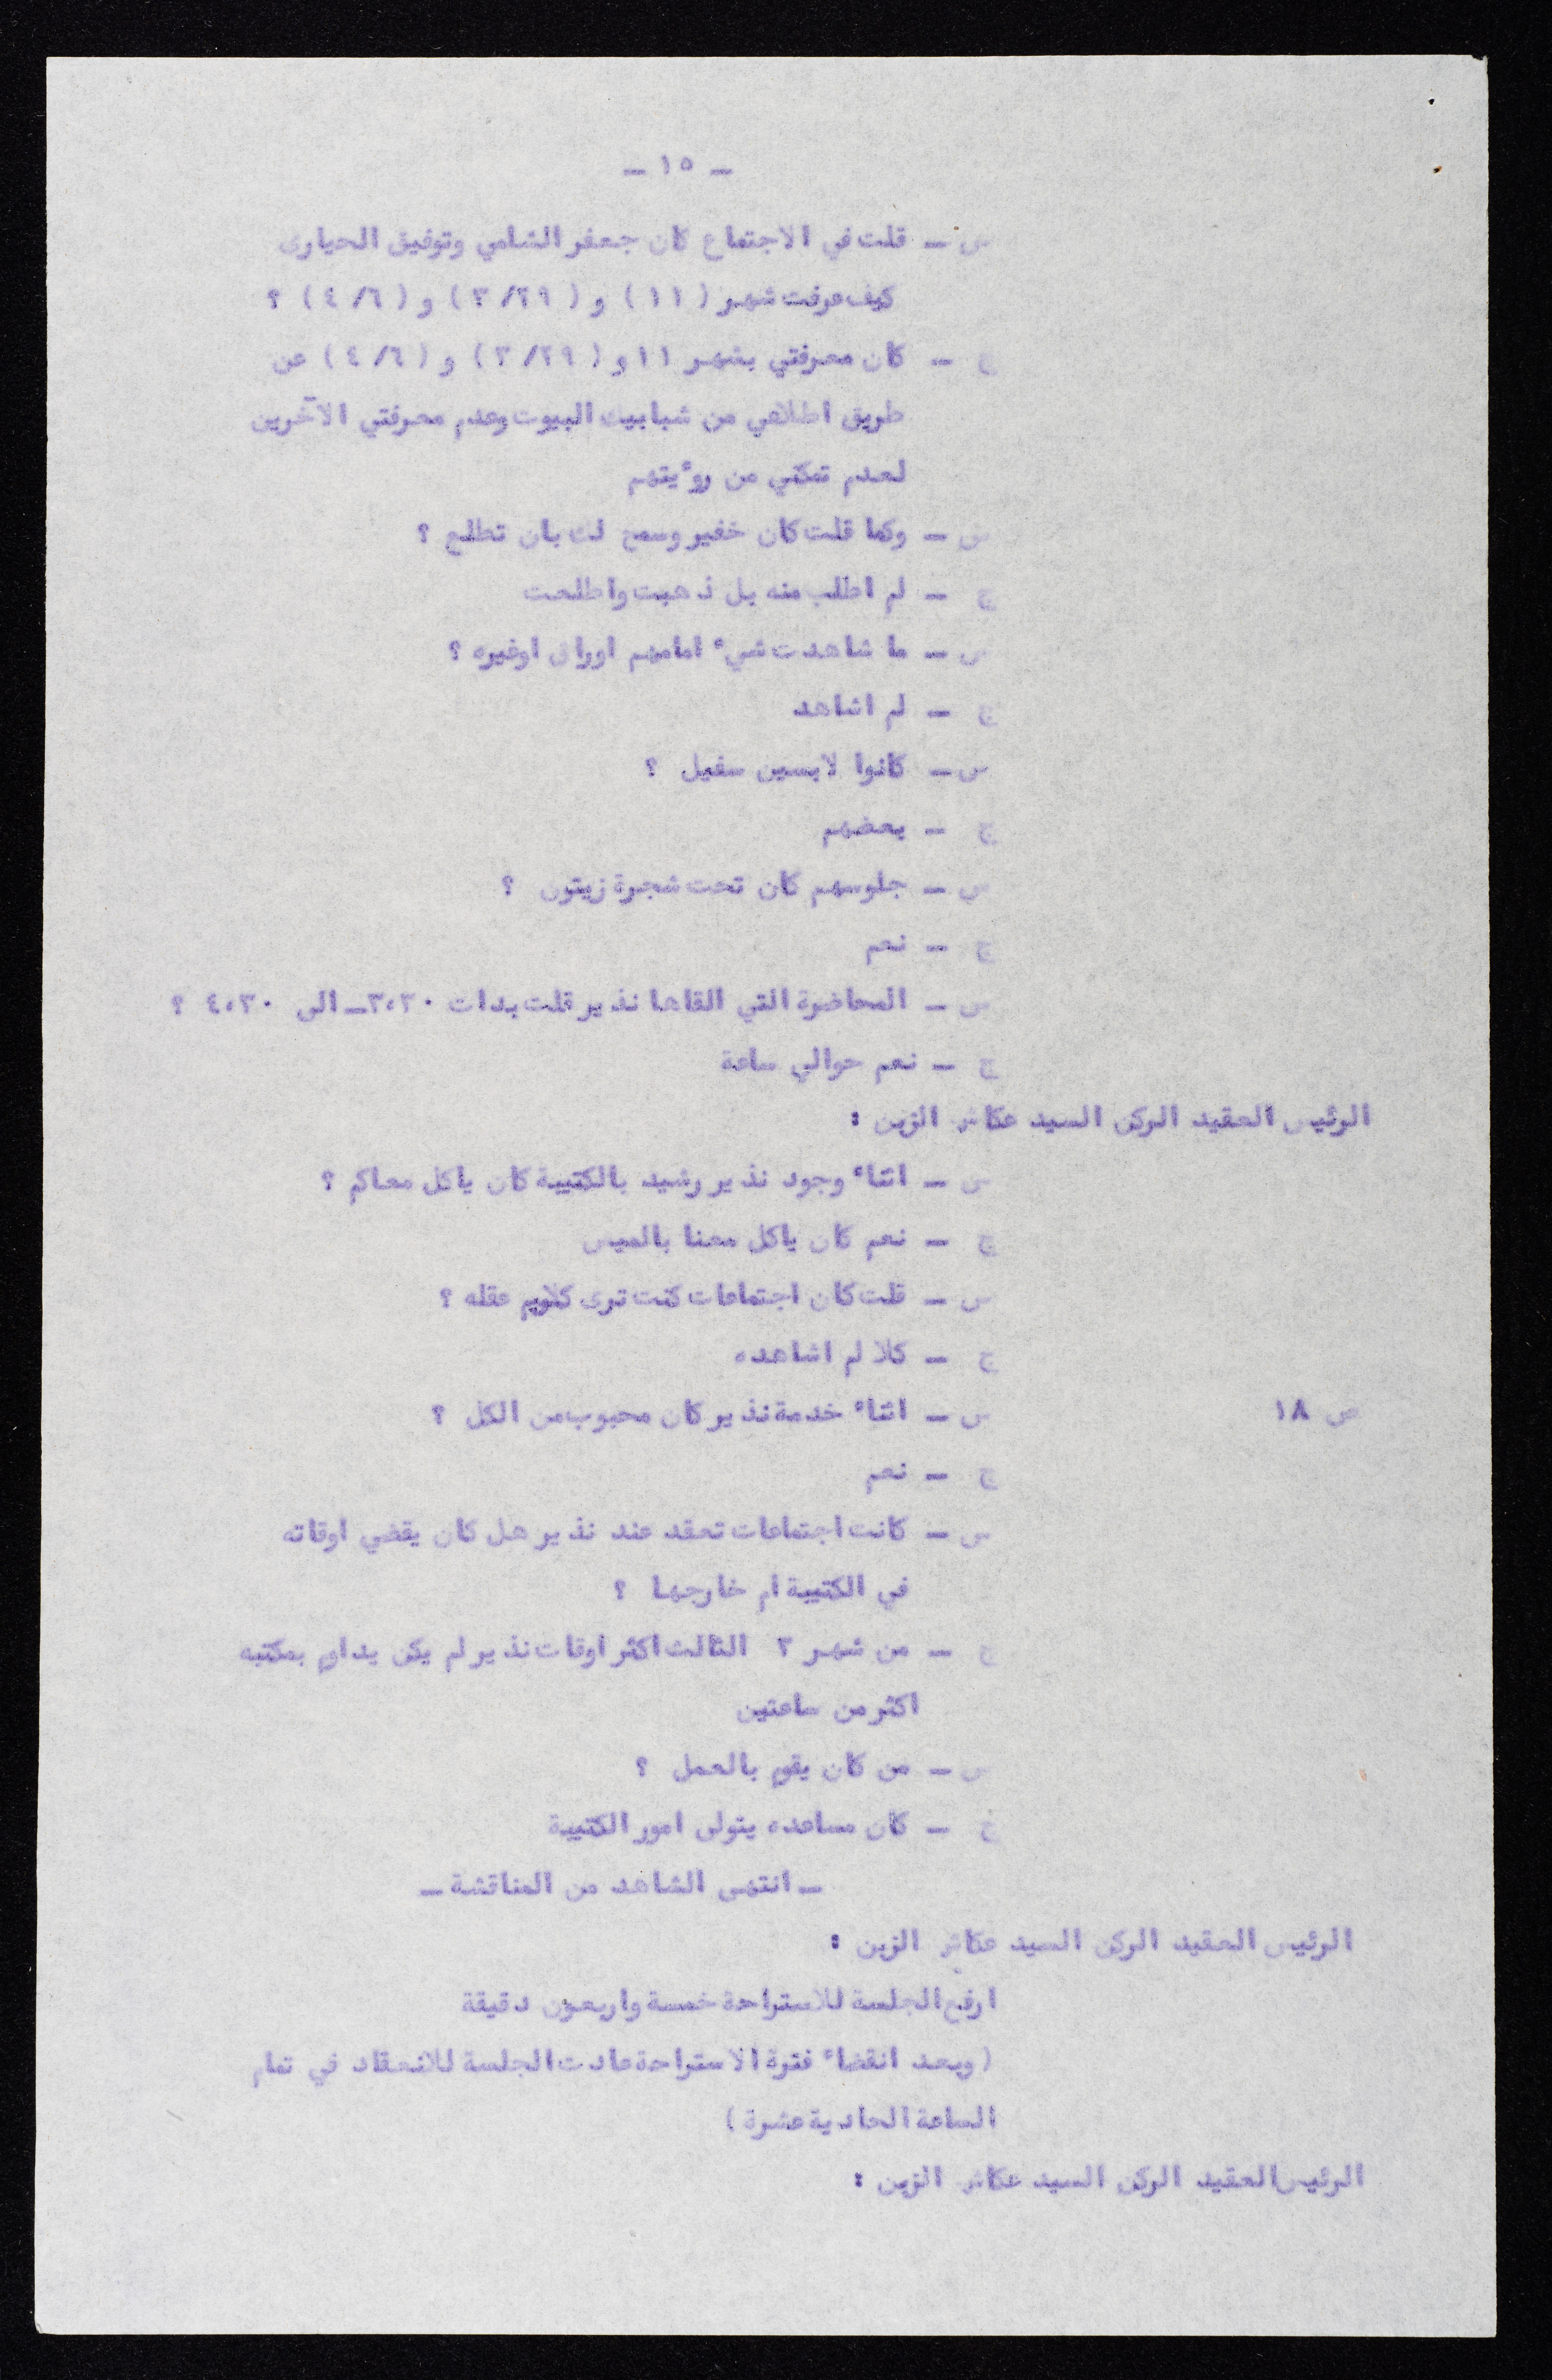 – ١٥ –
س – قلت في الاجتماع كان جعفر الشامي وتوفيق الحيارى
كيف عرفت شهر ( ١١ ) و ( ٣/٢٩ ) و ( ٤/٦ ) ؟
ج – كان معرفتي بشهر ١١ و ( ٣/٢٩ ) و ( ٤/٦ ) عن
طريق اطلاعي من شبابيك البيوت وعدم معرفتي الآخرين
لعدم تمكني من روءيتهم
س – وكما قلت كان خفير وسمح لك بان تطلع ؟
ج – لم اطلب منه بل ذهبت واطلعت
س – ما شاهدت شيء امامهم اوراق اوغيره ؟
ج – لم اشاهد
س – كانوا لابسين سفيل ؟
ج – بعضهم
س – جلوسهم كان تحت شجرة زيتون ؟
ج – نعم
س – المحاضرة التي القاها نذير قلت بدات ٣،٣٠ – الى ٤،٣٠ ؟
ج – نعم حوالي ساعة
الرئيس العقيد الركن السيد عكاش الزبن :
س – اثناء وجود نذير رشيد بالكتيبة كان ياكل معاكم ؟
ج – نعم كان ياكل معنا بالميس
س – قلت كان اجتماعات كنت ترى كلوب عقله ؟
ج – كلا لم اشاهده
ص ١٨
س – اثناء خدمة نذير كان محبوب من الكل ؟
ج – نعم
س – كانت اجتماعات تعقد عند نذير هل كان يقضي اوقاته
في الكتيبة ام خارجها ؟
ج – من شهر ٣ الثالث اكثر اوقات نذير لم يكن يداوم بمكتبه
اكثر من ساعتين
س – من كان يقوم بالعمل ؟
ج – كان مساعده يتولى امور الكتيبة
– انتهى الشاهد من المناقشة –
الرئيس العقيد الركن السيد عكاش الزبن :
ارفع الجلسة للاستراحة خمسة واربعون دقيقة
( وبعد انقضاء فترة الاستراحة عادت الجلسة للانعقاد في تمام
الساعة الحادية عشرة )
الرئيس العقيد الركن السيد عكاش الزبن :